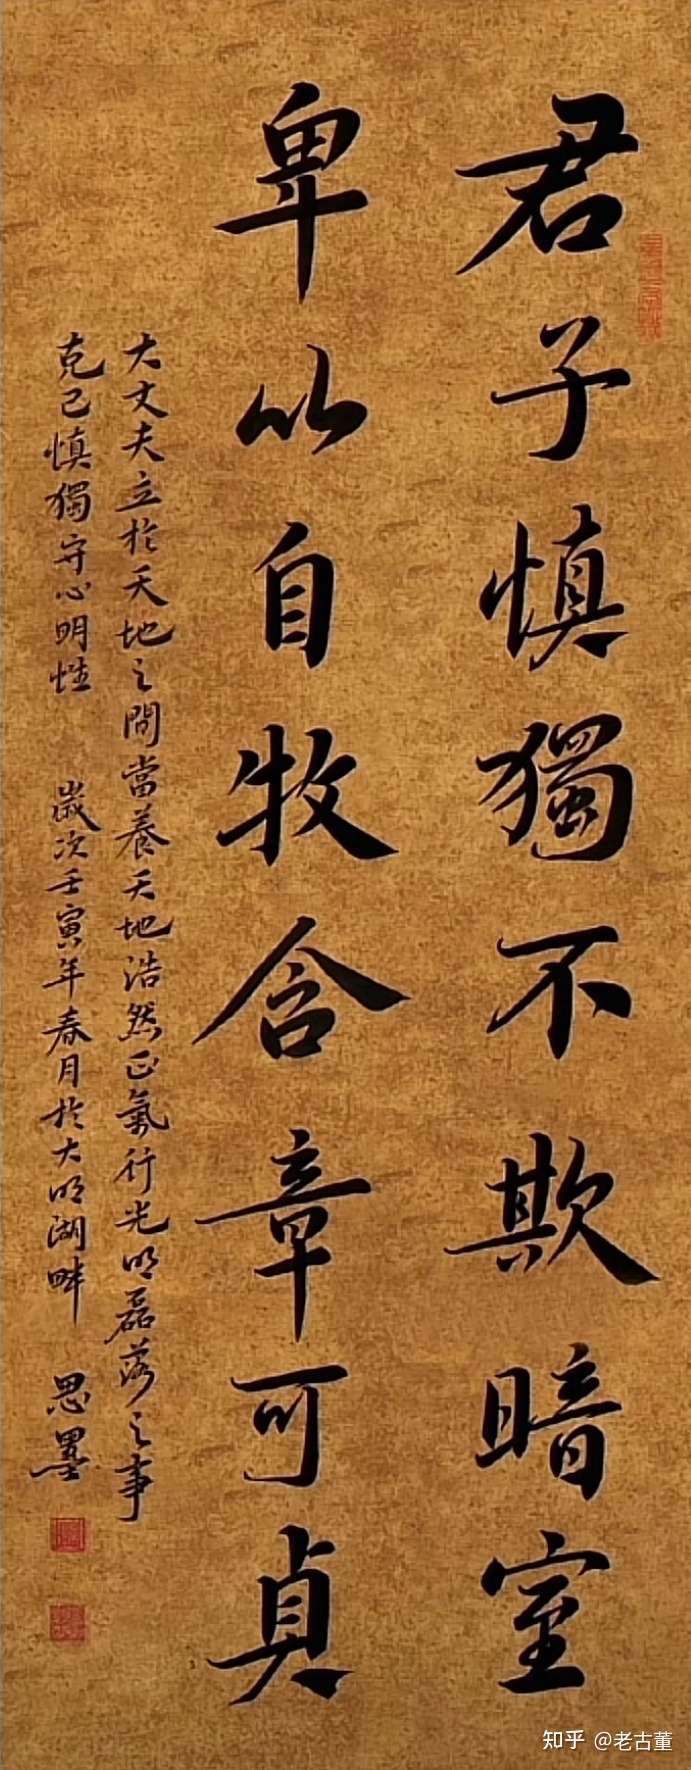 君子慎獨不欺暗室
卑以自牧含章可貞
大丈夫立於天地之間當養天地浩然正氣行光明磊落之事
克己慎獨守心明性 歲次壬寅年春月於大明湖畔 思墨
知乎 @老古董